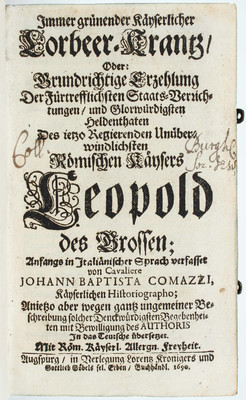 Immer grünender Käyserlicher
Lorbeer-Krantz/
Oder:
Grundrichtige Erzehlung
Der Fürtrefflichsten Staats-Verrich-
tungen/ und Glorwürdigsten
Heldenthaten
Des ietzo Regierenden Unüber-
windlichsten
Römischen Käysers
Leopold
des Grossen;
Anfangs in Italiänischer Sprach verfasset
von Cavaliere
JOHANN BAPTISTA COMAZZI,
Käyserlichen Historiographo;
Anietzo aber wegen gantz ungemeiner Be-
schreibung solcher Denckwürdigsten Begebenhei-
ten mit Bewilligung des AUTHORIS
In das Teutsche übersetzet.
Mit Röm. Käyserl. Allergn. Freyheit.
Augspurg/ in Verlegung Lorentz Kronigers und
Gottlieb Göbels sel. Erben/ Buchhändl. 1690.
Coll.